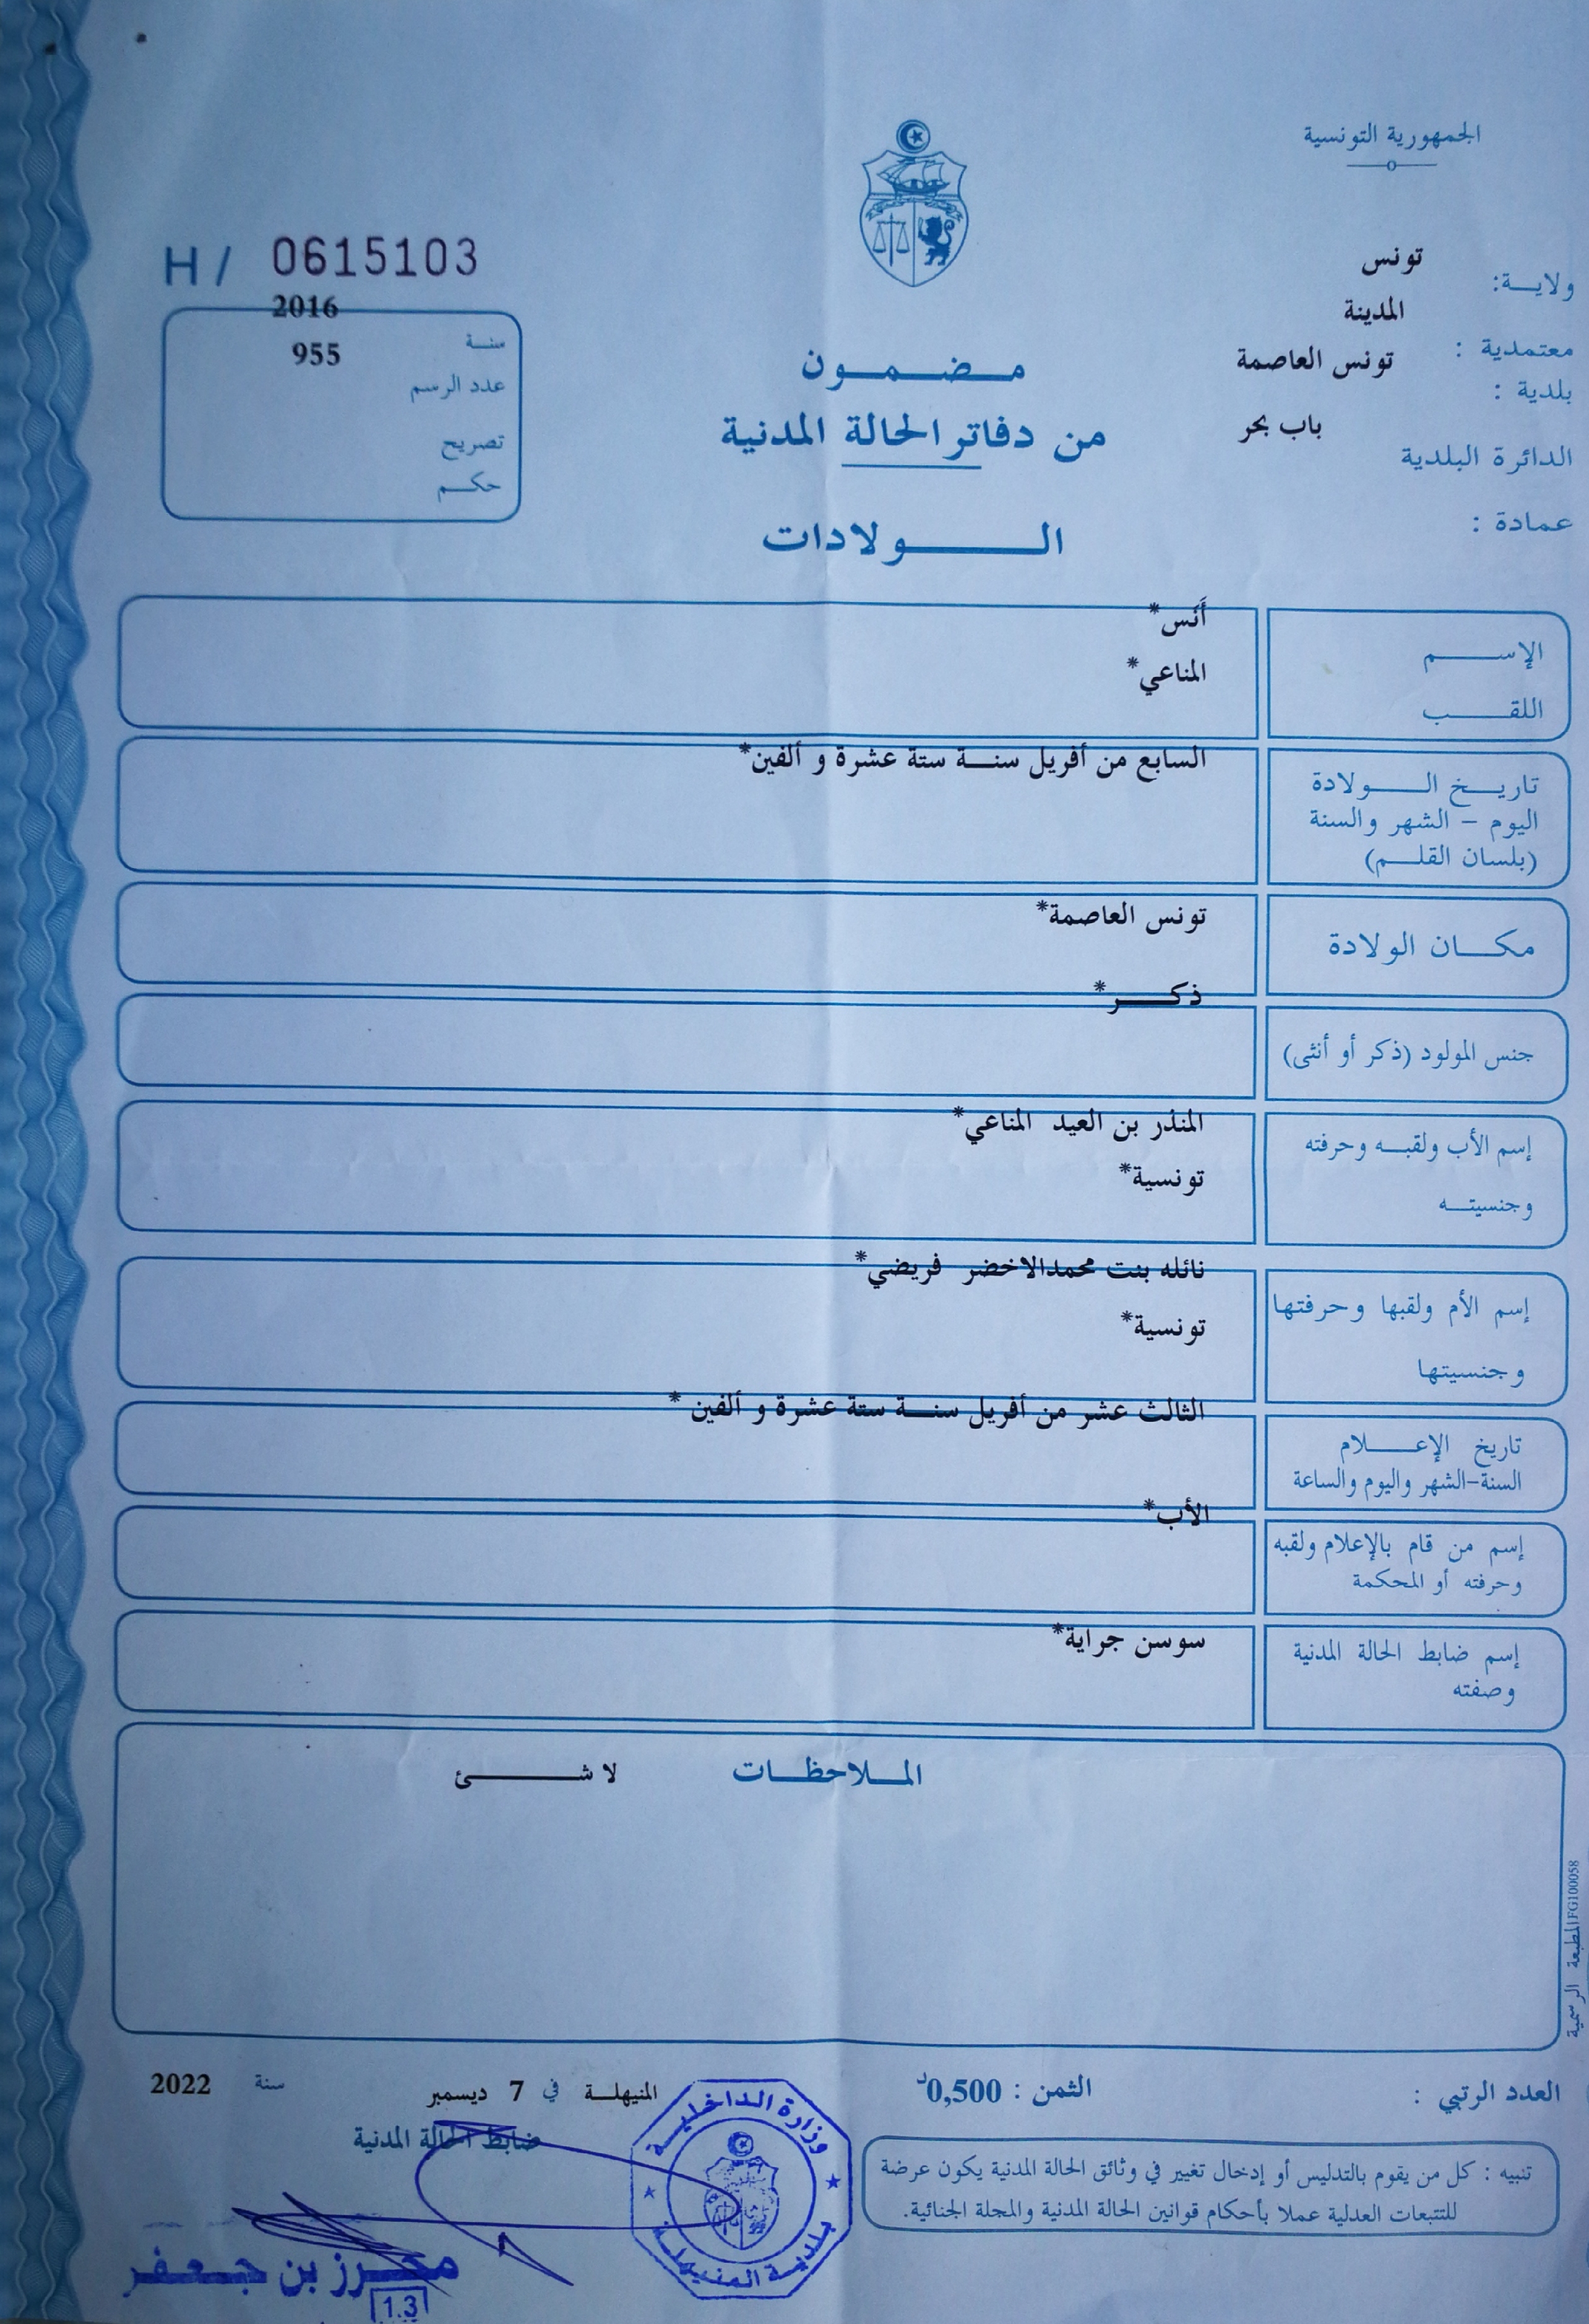 الجمهورية التونسية
ولايــة: تونس
المدينة
معتمدية :
تونس العاصمة
بلدية :
باب بحر
الدائرة البلدية
عمادة :
H / 0615103
2016
سنـة
955
عدد الرسم
تصريح
حكـم
مـضـمـون
من دفاتر الحالة المدنية
الـولادات
الإسـم
أَنَس*
اللقـب
المناعي*
تاريـخ الـولادة
اليوم - الشهر والسنة
(بلسان القلـم)
السابع من أفريل سنـة ستة عشرة و ألفين*
مكـان الولادة
تونس العاصمة*
جنس المولود (ذكر أو أنثى)
ذكـر*
إسم الأب ولقبـه وحرفته
وجنسيتـه
المنذر بن العيد المناعي*
تونسية*
إسم الأم ولقبها وحرفتها
وجنسيتها
نائله بنت محمدالاخضر فريضي*
تونسية*
تاريخ الإعـلام
السنة-الشهر واليوم والساعة
الثالث عشر من أفريل سنـة ستة عشرة و ألفين *
إسم من قام بالإعلام ولقبه
وحرفته أو المحكمة
الأب*
إسم ضابط الحالة المدنية
وصفته
سوسن جراية*
المـلاحظـات
لا شـئ
المطبعة الرسمية FG100058
العدد الرتبي :
الثمن : 0,500د
المنيهلـة في 7 ديسمبر سنة 2022
ضابط الحالة المدنية
تنبيه : كل من يقوم بالتدليس أو إدخال تغيير في وثائق الحالة المدنية يكون عرضة
للتتبعات العدلية عملا بأحكام قوانين الحالة المدنية والمجلة الجنائية.
وزارة الداخليـة
بلديـة المنيهلـة
محـرز بن جـعـفـر
1.3